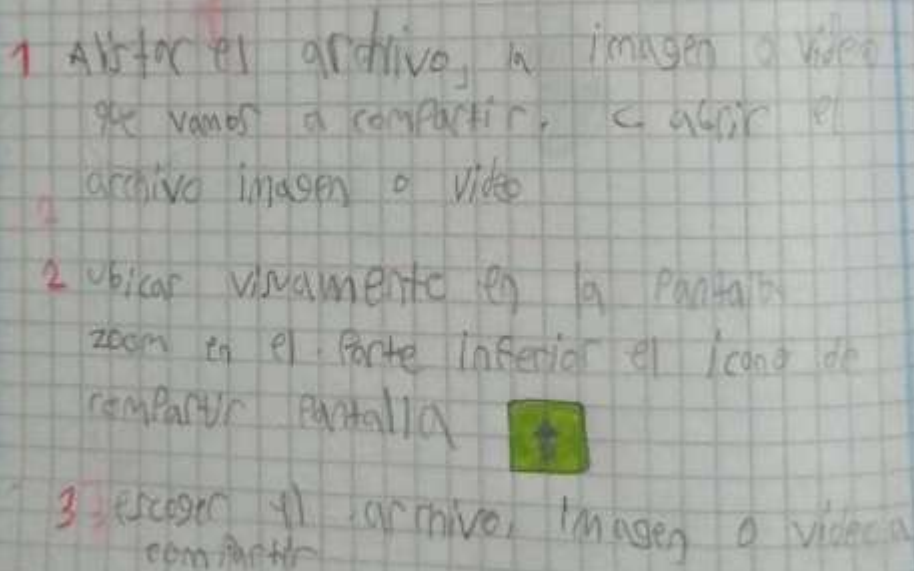 1 Alistar el archivo, la imagen o video
que vamos a compartir. c abrir el
archivo imagen o video
2
2 ubicar visuamente en la Pantalla
zoom en el Parte inferior el icono de
compartir Pantalla
3 escoger el archivo, imagen o video a
compartir